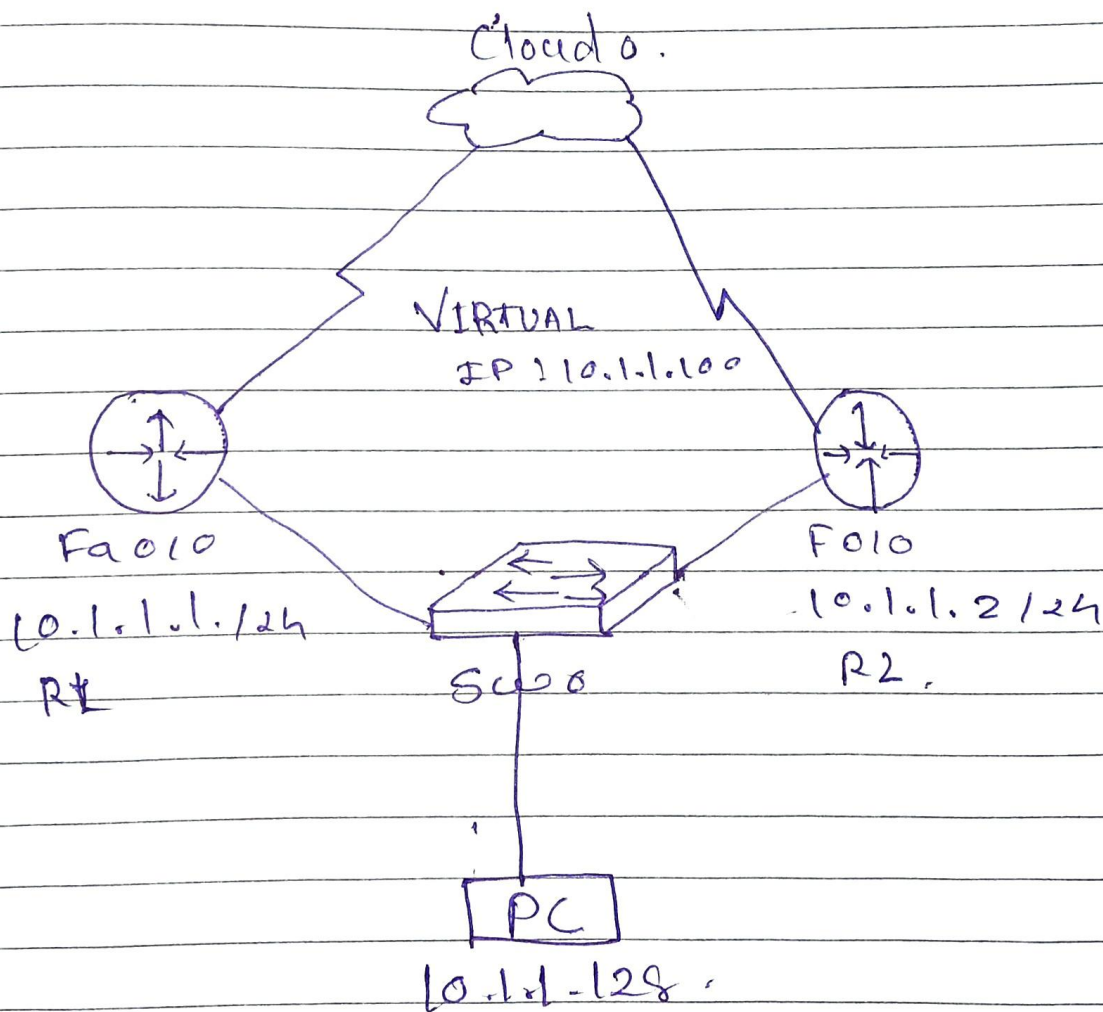 Cloud 0.
VIRTUAL
IP : 10.1.1.100
Fa 0/0
10.1.1.1./24
R1
Sw 0
F0/0
10.1.1.2/24
R2.
PC
10.1.1.128.